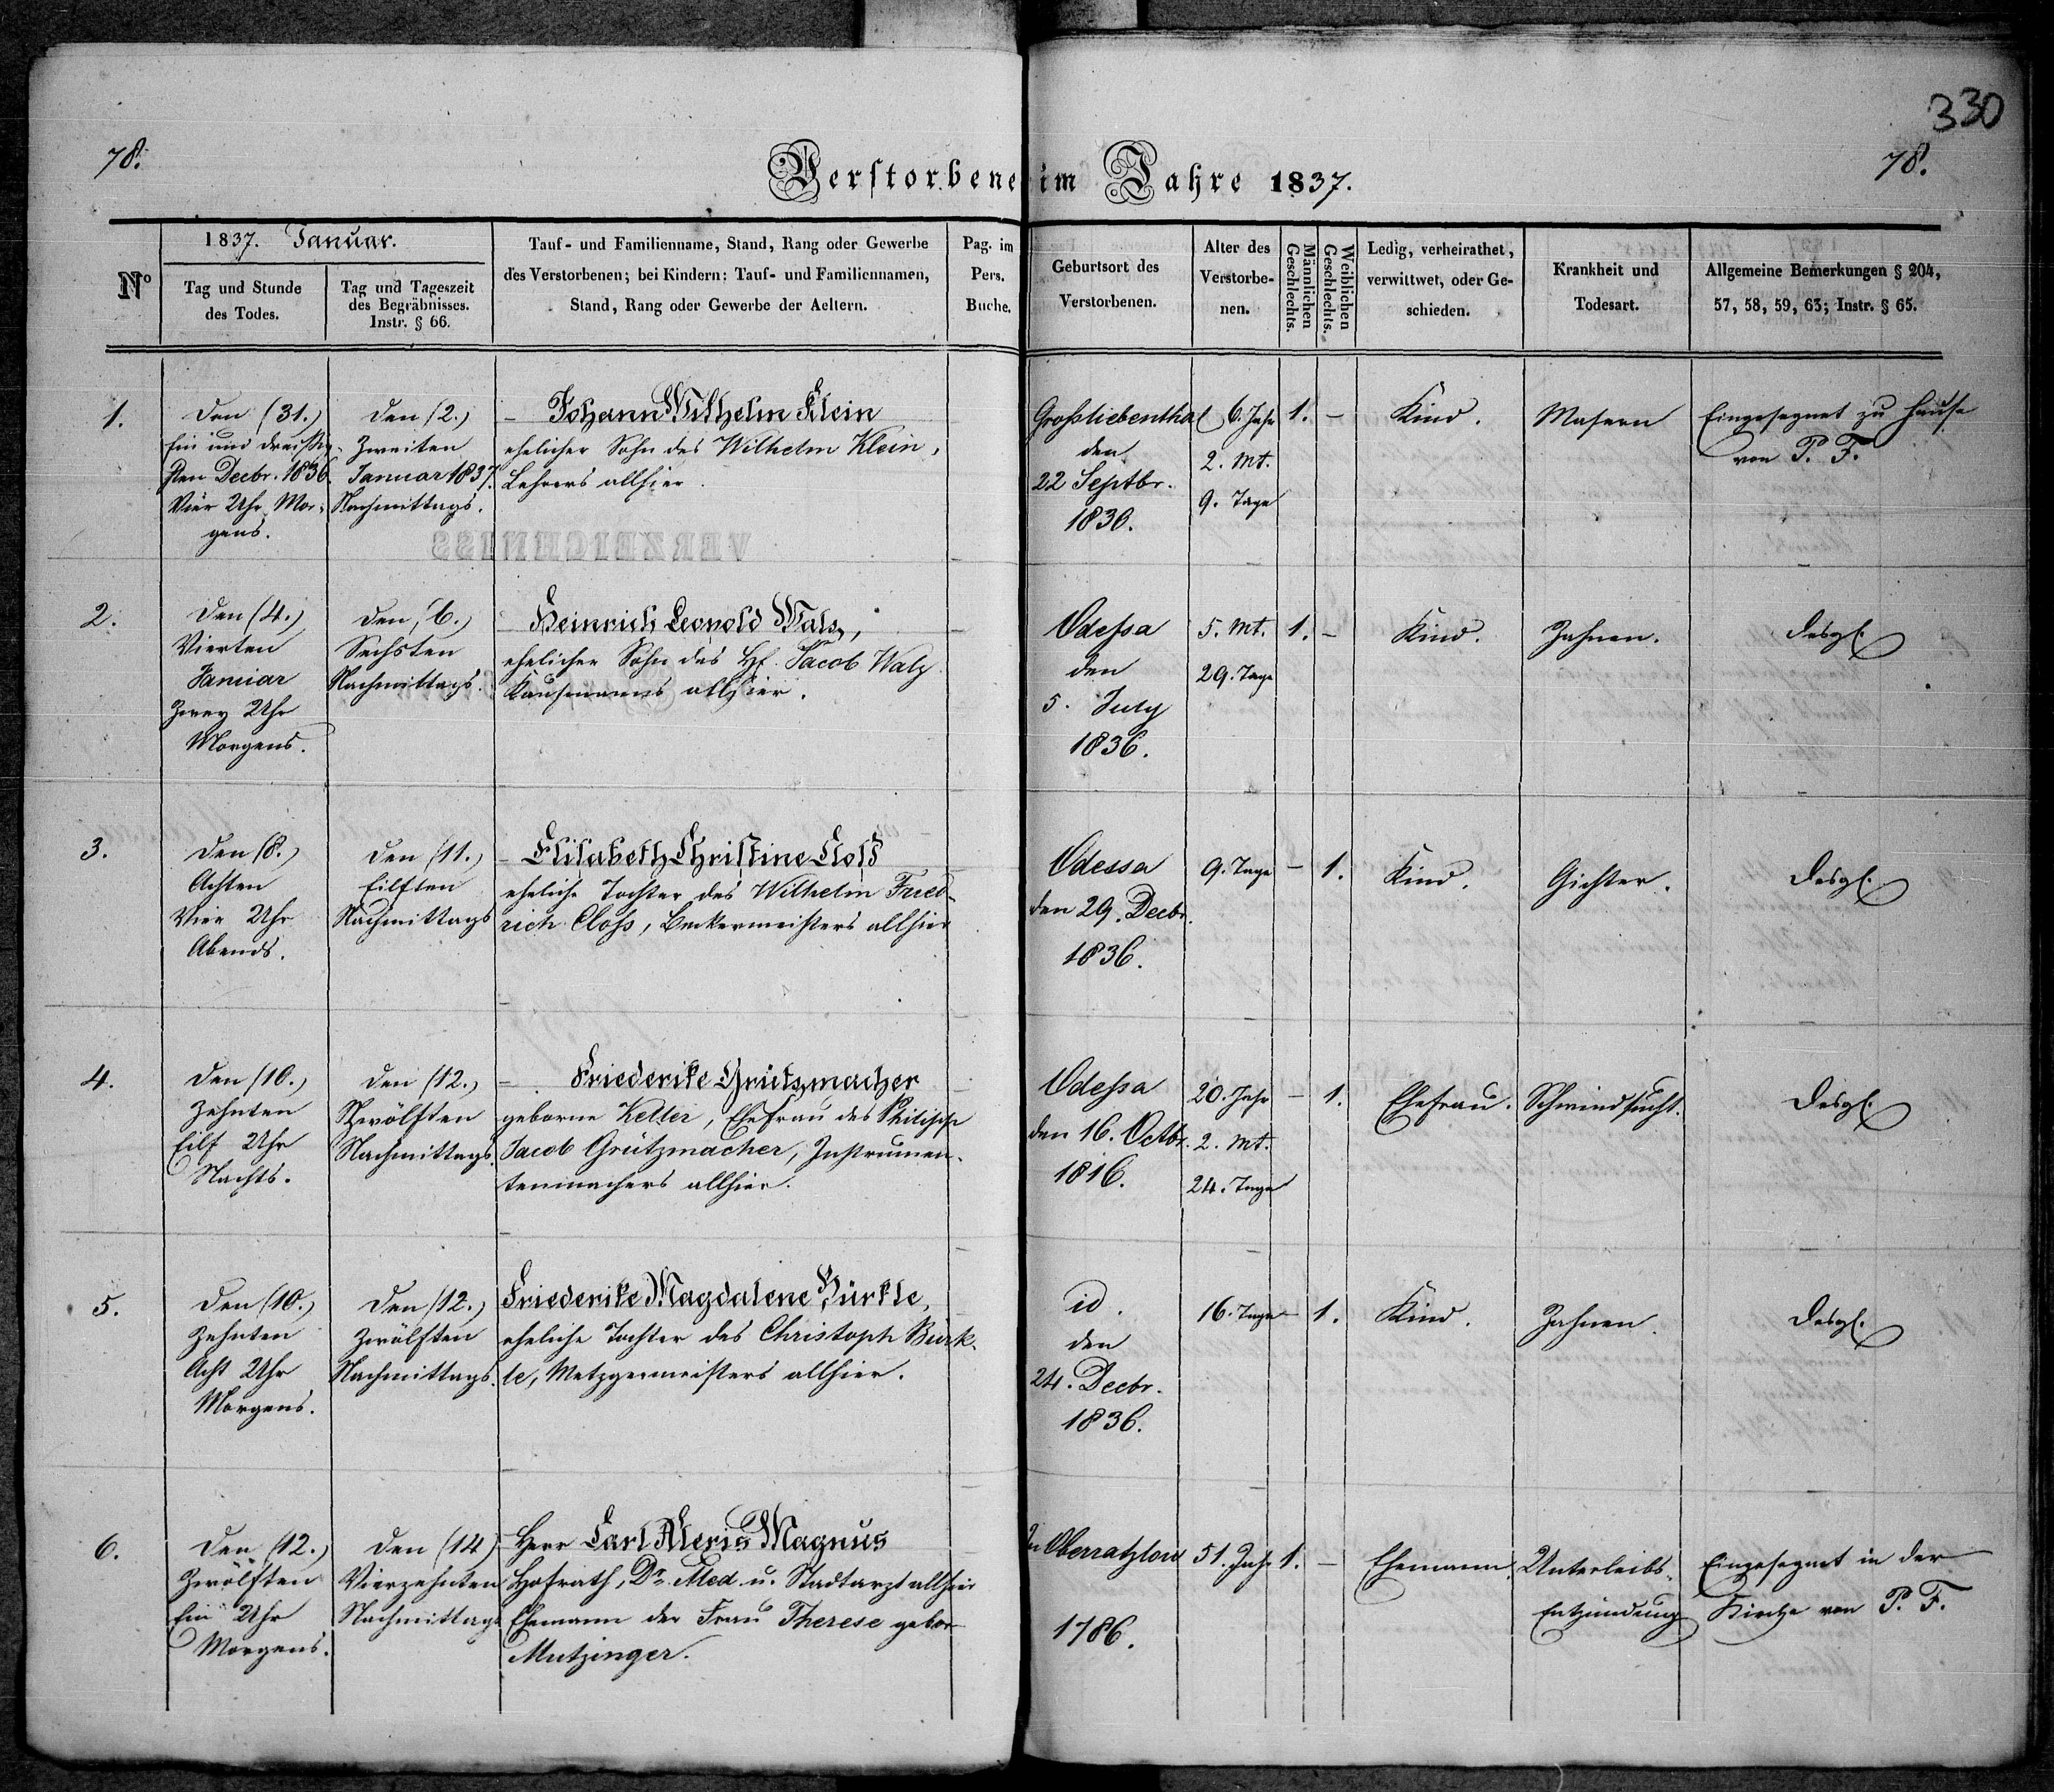 330
78.
78.
Verstorbene im Jahre 1837.
No
1837. Januar.
Tag und Stunde
des Todes.
Tag und Tageszeit
des Begräbnisses.
Instr. § 66.
Tauf- und Familienname, Stand, Rang oder Gewerbe
des Verstorbenen; bei Kindern: Tauf- und Familiennamen,
Stand, Rang oder Gewerbe der Aeltern.
Pag. im
Pers.
Buche.
Geburtsort des
Verstorbenen.
Alter des
Verstorbe-
nen.
Männlichen
Geschlechts.
Weiblichen
Geschlechts.
Ledig, verheirathet,
verwittwet, oder Ge-
schieden.
Krankheit und
Todesart.
Allgemeine Bemerkungen § 204,
57, 58, 59, 63; Instr. § 65.
1.
Den (31.)
Ein und dreißig-
sten Decbr. 1836.
Vier Uhr Mor-
gens.
Den (2.)
Zweiten
Januar 1837.
Nachmittags.
Johann Wilhelm Klein
ehelicher Sohn des Wilhelm Klein,
Lehrers allhier.
Großliebenthal
den
22 Septbr.
1830.
6. Jahr
2. Mt.
9. Tage
1. –
Kind.
Masern
Eingesegnet zu Hause
von P. F.
2.
Den (4.)
Vierten
Januar
Zwey Uhr
Morgens.
Den (6.)
Sechsten
Nachmittags.
Heinrich Leopold Walz,
ehelicher Sohn des H. Jacob Walz
Kaufmanns allhier.
Odeßa
den
5. July
1836.
5. Mt.
29. Tage
1. –
Kind.
Zahnen.
Desgl.
3.
Den (8.)
Achten
Vier Uhr
Abends.
Den (11.)
Eilften
Nachmittags
Elisabeth Christine Cloß
eheliche Tochter des Wilhelm Fried-
rich Cloß, Beckermeisters allhier
Odessa
den 29. Decbr.
1836.
9. Tage
– 1.
Kind.
Gichter.
Desgl.
4.
Den (10.)
Zehnten
Eilf Uhr
Nachts.
Den (12.)
Zwölften
Nachmittags.
Friederike Grützmacher
geborne Keller, Ehefrau des Philipp
Jacob Grützmacher, Instrumen-
tenmachers allhier.
Odeßa
den 16. Octbr.
1816.
20. Jahr
2. Mt.
24. Tage
– 1.
Ehefrau.
Schwindsucht.
Desgl.
5.
Den (10.)
Zehnten
Acht Uhr
Morgens.
Den (12.)
Zwölften
Nachmittags.
Friederike Magdalene Bürkle,
eheliche Tochter des Christoph Bürk-
le, Metzgermeisters allhier.
id.
den
24. Decbr.
1836.
16. Tage
– 1.
Kind.
Zahnen.
Desgl.
6.
Den (12.)
Zwölften
Ein Uhr
Morgens.
Den (14)
Vierzehnten
Nachmittags
Herr Carl Alexis Magnus
Hofrath, Dr. Med. u. Stadtarzt allhier
Ehemann der Frau Therese gebor
Mutzinger.
In Oberratzlow
1786.
51. Jahr
1. –
Ehemann.
Unterleibs-
Entzündung
Eingesegnet in der
Kirche von P. F.